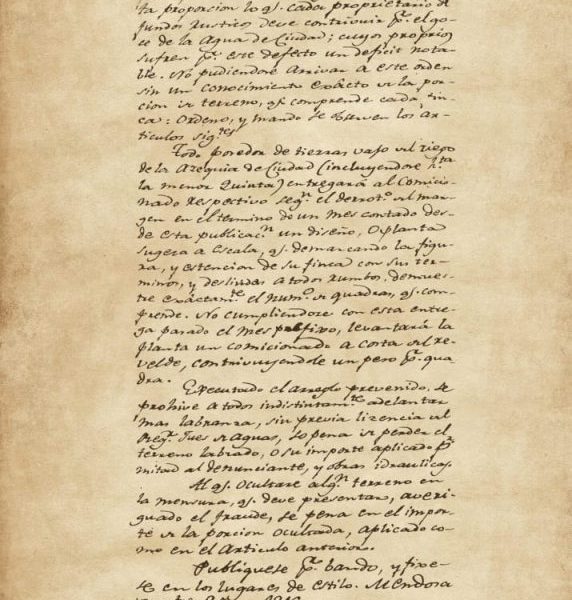 ta proporcion lo qs. cada proprietario de
fundos rusticos deve contribuir pr. el go-
ce de la Agua de Ciudad; cuyos proprios
sufren pr. este defecto un deficit nota-
ble. No pudiendose arrivar a este orden
sin un conocimiento exâcto de la por-
cion de terreno, qe. comprende cada fin-
ca: Ordeno, y mando se observen los Ar-
ticulos sigtes.
Todo poseedor de tierras vajo del riego
de la Azequia de Ciudad (incluyendose hta.
la menor Quinta) entregará al Comicio-
nado respectivo segn. el derroto. del mar-
gen en el termino de un mes contado des-
de esta publicacn. un diseño, o planta
sugeta a Escala, qe. demarcando la figu-
ra, y estencion de su finca con sus ter-
minos, y deslindes a todos rumbos, demues-
tre exâctamte. el numo. de quadras, qe. com-
prende. No cumpliendose con esta entre-
ga pasado el mes prefixo, levantará la
planta un comicionado a costa del re-
velde, contrivuyendole un peso pr. qua
dra.
Executado el arreglo prevenido. Se
prohive a todos indistintamte. adelantar
mas labranza, sin previa lizencia del
Regr. Jues de Aguas, so pena de perder el
terreno labrado, o su importe aplicado pr.
mitad al denunciante, y obras idraulicas.
Al qe. Ocultare algn. terreno en
la mensura, qe. deve presentar, averi-
guado el fraude, se pena en el impor-
te de la porcion ocultada, aplicado co-
mo en el Articulo anterior.
Publiquese pr. bando, y fixe-
se en los lugares de estilo. Mendosa